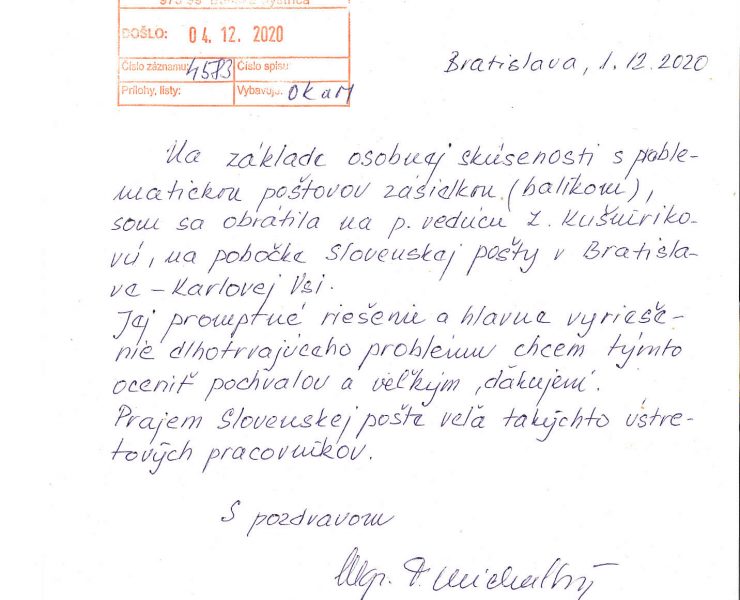 975 99 Banská Bystrica
DOŠLO: 04. 12. 2020
Číslo záznamu: 4583 Číslo spisu:
Prílohy, listy: Vybavuje: OKaM
Bratislava, 1.12.2020
Na základe osobnej skúsenosti s proble-
matickou poštovov zásielkou (balíkom),
som sa obrátila na p. vedúcu Z. Kušníriko-
vú, na pobočke Slovenskej pošty v Bratisla-
ve – Karlovej Vsi.
Jej promptné riešenie a hlavne vyrieše-
nie dlhotrvajúceho problému chcem týmto
oceniť pochvalou a veľkým „ďakujem“.
Prajem Slovenskej pošte veľa takýchto ústre-
tových pracovníkov.
S pozdravom
Mgr.